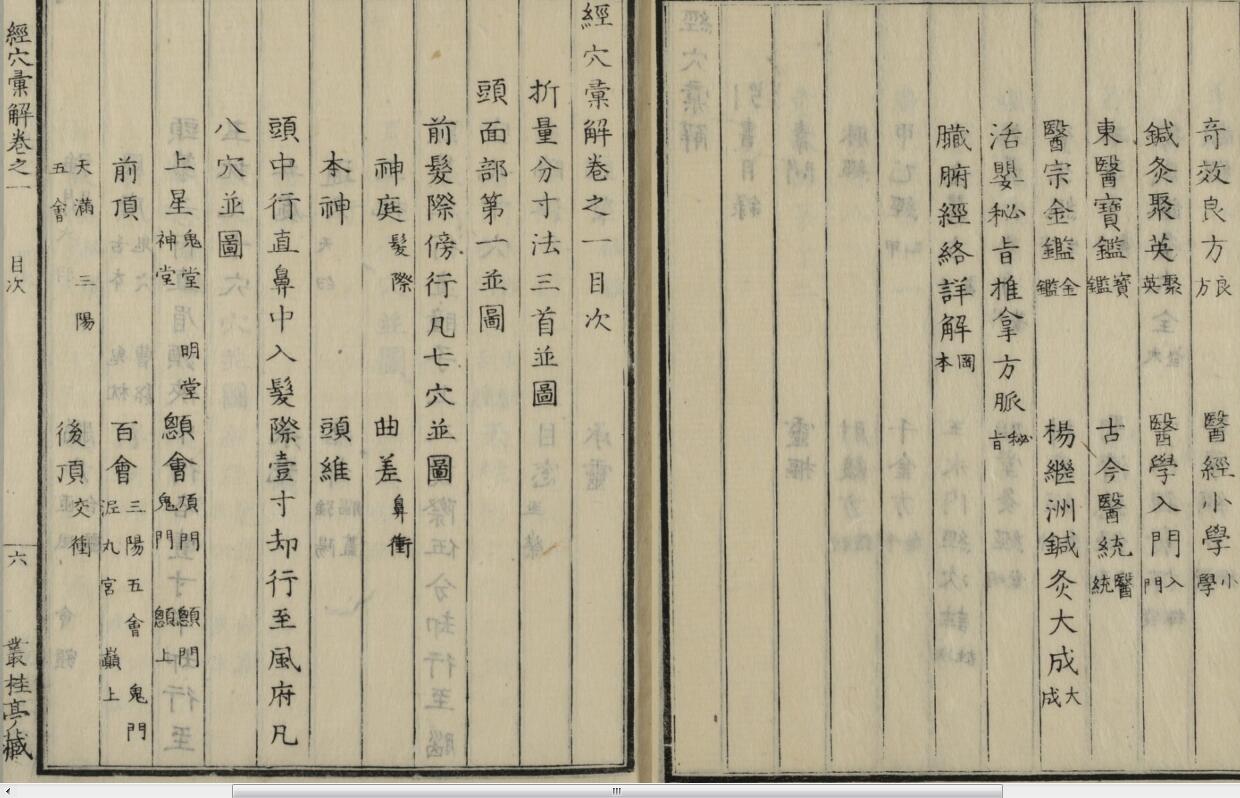 奇效良方良方 醫經小學小學
鍼灸聚英聚英 醫學入門入門
東醫寶鑑寶鑑 古今醫統醫統
醫宗金鑑金鑑 楊繼洲鍼灸大成大成
活嬰秘旨推拿方脈秘旨
臟腑經絡詳解岡本
經穴彙解卷之一目次
折量分寸法三首並圖
頭面部第一並圖
前髮際傍行凡七穴並圖
神庭髮際 曲差鼻衝
本神 頭維
頭中行直鼻中入髮際壹寸却行至風府凡
八穴並圖
上星鬼堂 明堂 神堂 顖會頂門 顖門 鬼門 顖上
前頂 百會三陽五會 鬼門 泥丸宮 巔上
天滿 三陽 五會 後頂交衝
經穴彙解卷之一 目次 六 叢桂亭藏